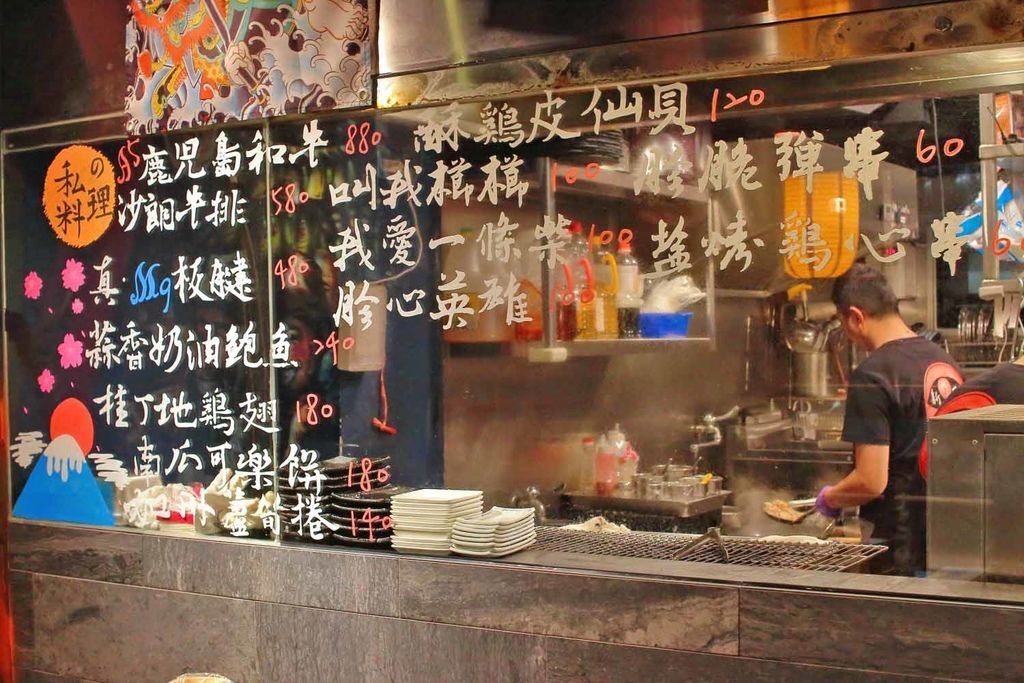 私の
料理
A5鹿児島和牛 880
沙朗牛排 580
真Mg板腱 480
蒜香奶油鮑魚 240
桂丁地鶏翅 180
南瓜可樂餅 180
蘆筍捲 140
酥鶏皮仙貝 120
叫我櫛櫛 100
我愛一條柴 100
胗心英雄 100
脆彈串 60
盐烤鶏心串